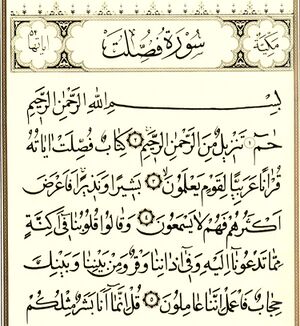 مكية سورة فصلت آياتها ٥٤
بِسْمِ اللهِ الرَّحْمٰنِ الرَّحِيمِ
حٰمٓ ۝١ تَنْزِيلٌ مِنَ الرَّحْمٰنِ الرَّحِيمِ ۝٢ كِتَابٌ فُصِّلَتْ اٰيَاتُهُ
قُرْاٰنًا عَرَبِيًّا لِقَوْمٍ يَعْلَمُونَ ۝٣ بَشِيرًا وَنَذِيرًا فَاَعْرَضَ
اَكْثَرُهُمْ فَهُمْ لَا يَسْمَعُونَ ۝٤ وَقَالُوا قُلُوبُنَا فِي اَكِنَّةٍ
مِمَّا تَدْعُونَا اِلَيْهِ وَفِي اٰذَانِنَا وَقْرٌ وَمِنْ بَيْنِنَا وَبَيْنِكَ
حِجَابٌ فَاعْمَلْ اِنَّنَا عَامِلُونَ ۝٥ قُلْ اِنَّمَا اَنَا بَشَرٌ مِثْلُكُمْ